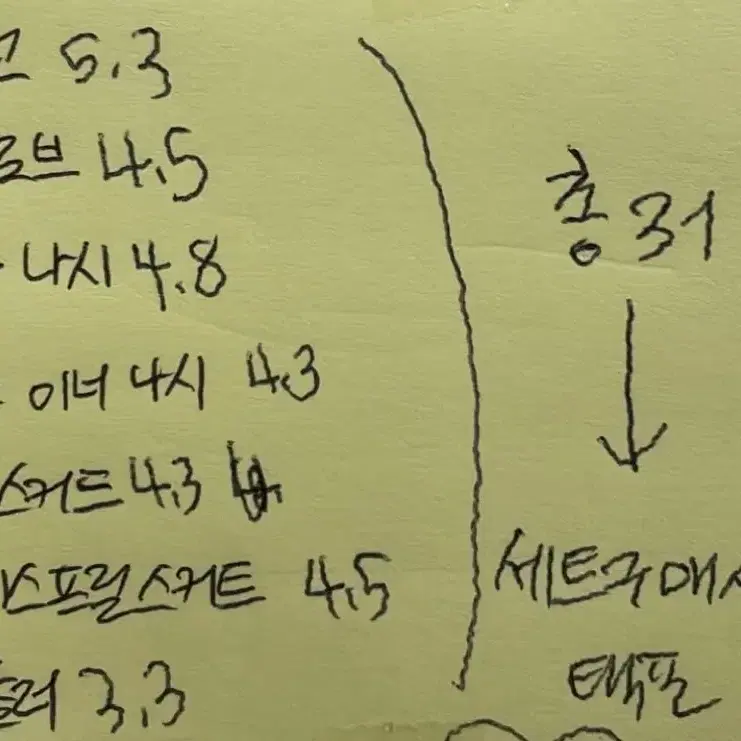 고 5.3
로브 4.5
나시 4.8
이너 나시 4.3
스커트 4.3
스프릴스커트 4.5
러 3.3
총 31
세트구매시
택포